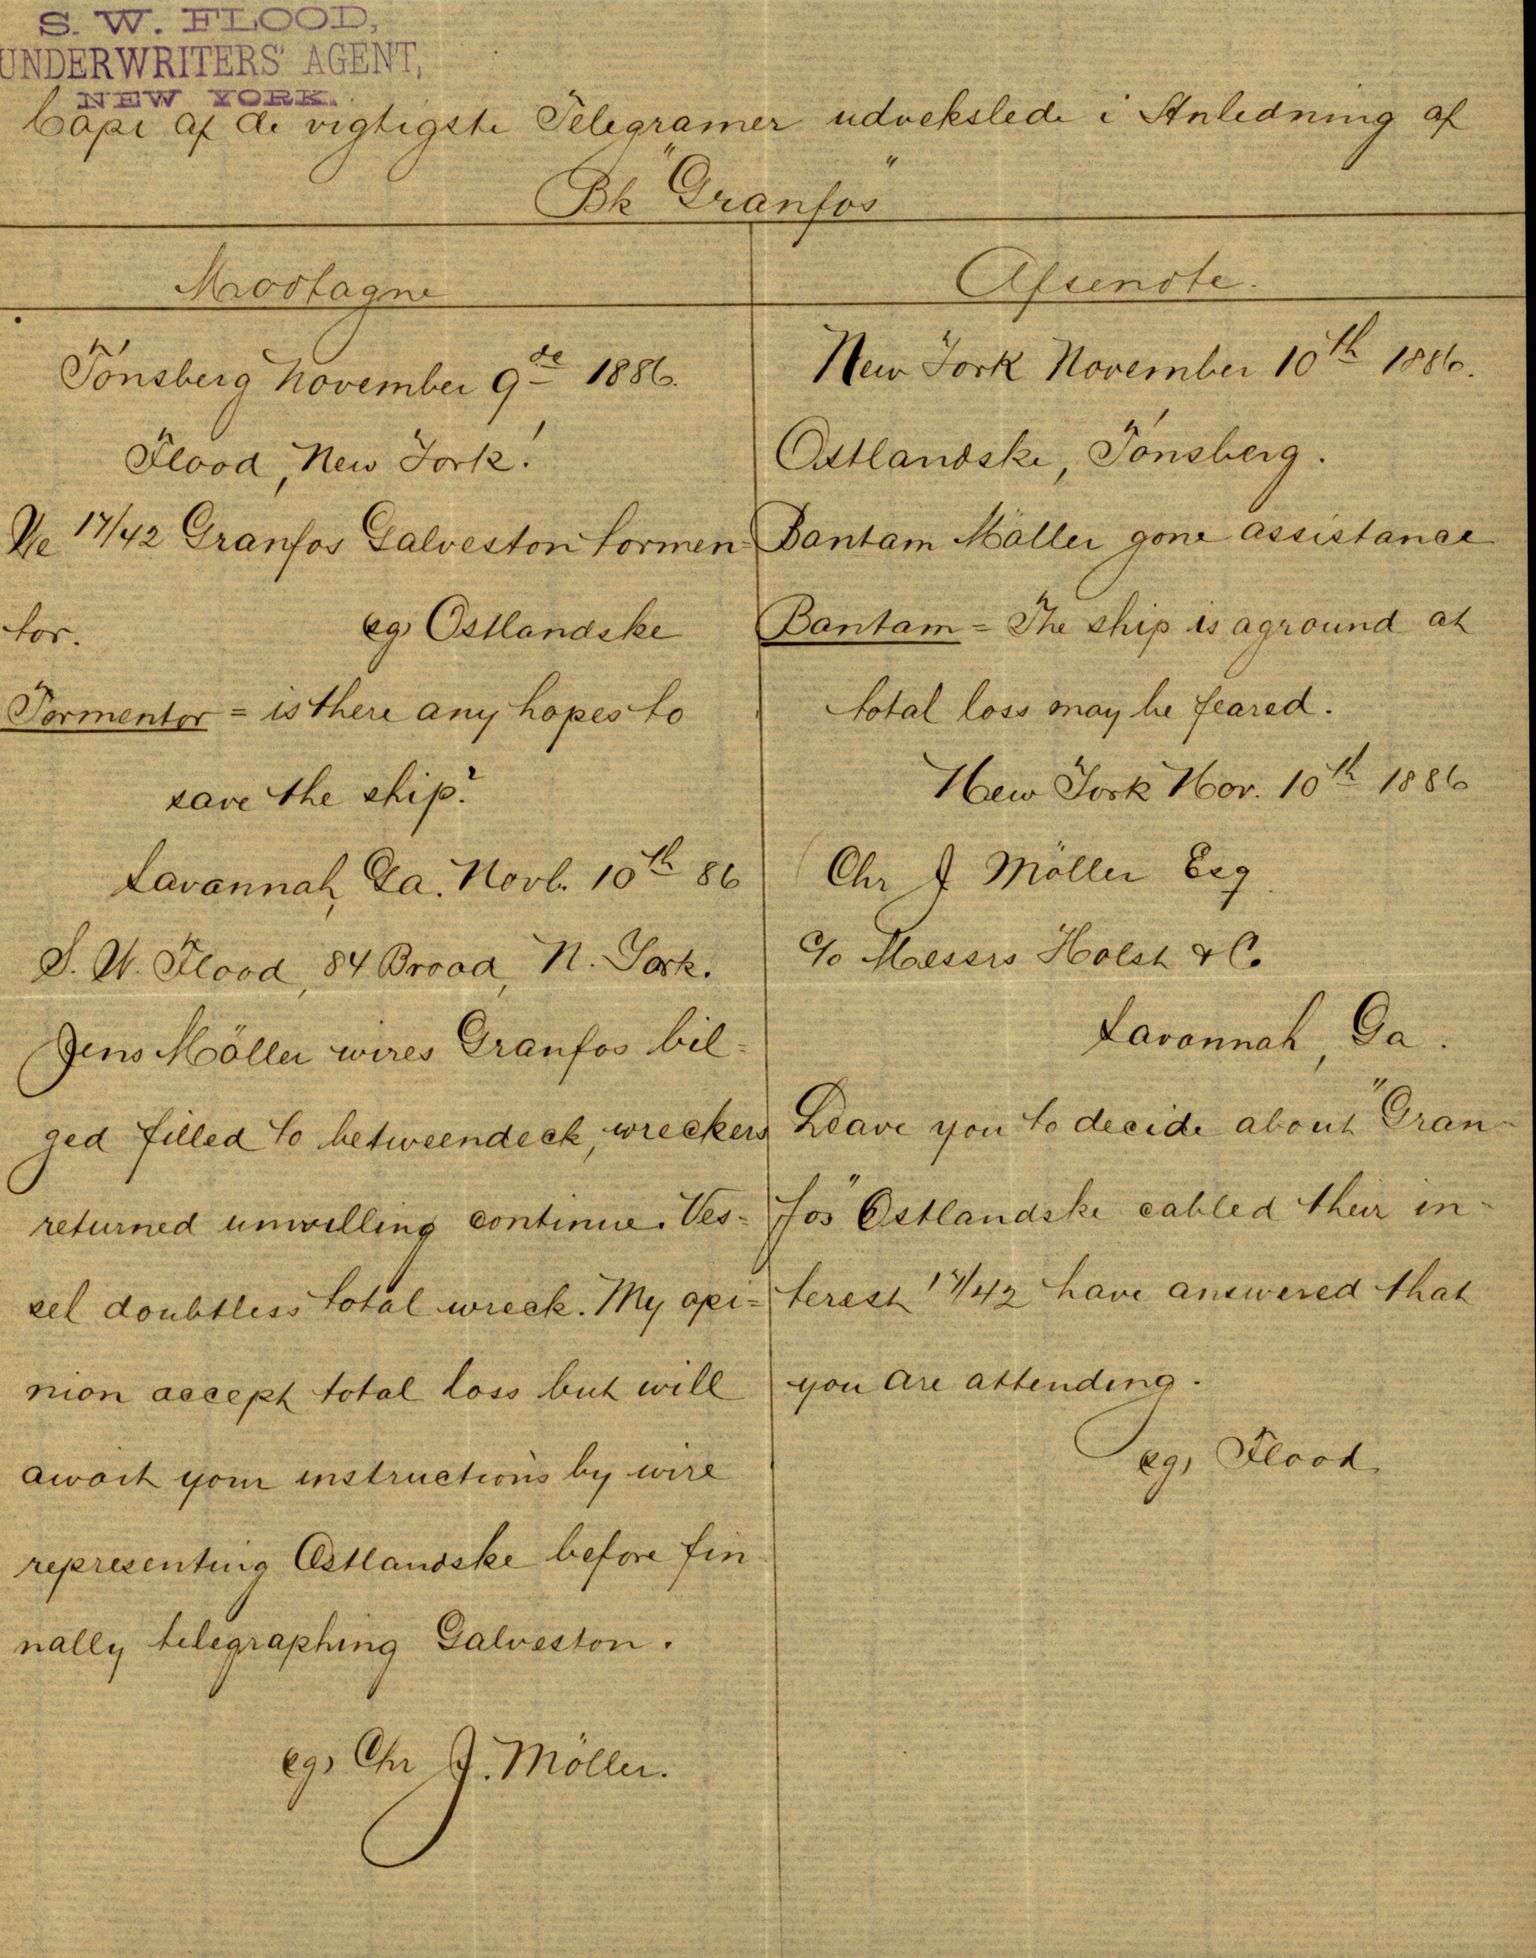 S. W. FLOOD,
UNDERWRITERS' AGENT,
NEW YORK.
Copi af de vigtigste Telegramer udvekslede i Anledning af
Bk "Granfos"
Modtagne
Tönsberg November 9de 1886.
Flood, New York!
We 17/42 Granfos Galveston tormen=
tor. sg) Ostlandske
Tormentor = is there any hopes to
save the ship?
Savannah, Ga. Novb. 10th 86
S. W. Flood, 84 Broad, N. York.
Jens Möller wires Granfos bil=
ged filled to betweendeck, wreckers
returned unwilling continue. Ves=
sel doubtless total wreck. My opi=
nion accept total loss but will
await your instructions by wire
representing Ostlandske before fin-
nally telegraphing Galveston.
sg) Chr J. Möller.
Afsendte.
New York November 10th 1886.
Ostlandske, Tönsberg.
Bantam Möller gone assistance
Bantam = The ship is aground at
total loss may be feared.
New York Nov. 10th 1886
Chr J Möller Esq
c/o Messrs Holst & Co
Savannah, Ga.
Leave you to decide about "Gran-
fos" Ostlandske cabled their in-
terest 17/42 have answered that
you are attending.
sg) Flood